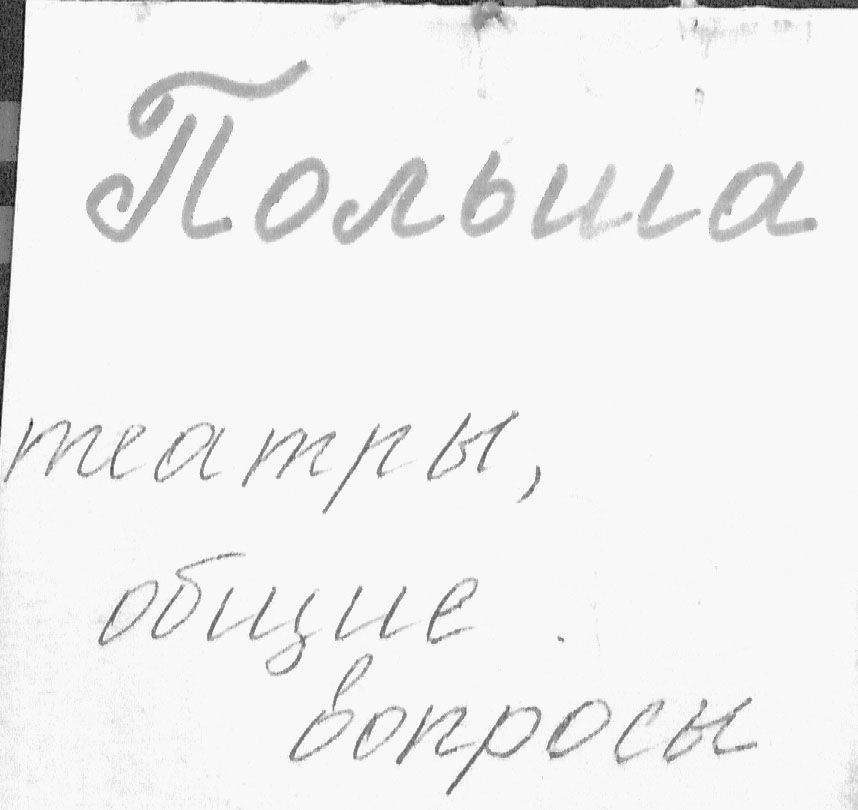 Польша
театры,
общие
вопросы